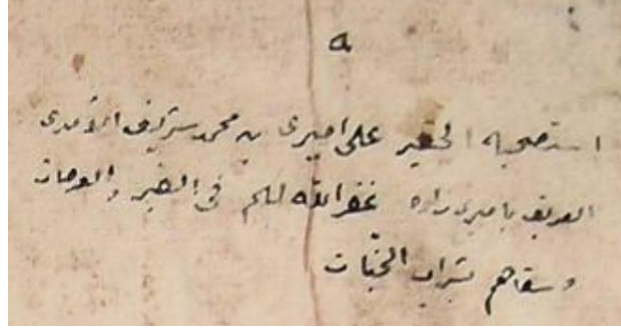 ه
استصحبه الحقير علی اميری بن محمد شريف الآمدی
العريف باميری زاده غفر الله لهم فی القبر والعرصات
وسقاهم شراب الجنات